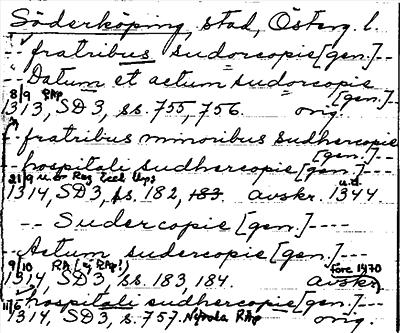 Söderköping, stad, Österg. l.
-- fratribus sudorcopie [gen.] --
-- Datum et actum sudorcopie [gen.] --
8/9 RAp
1313, SD 3, ss. 755, 756. orig.
-- fratribus minoribus sudhercopie [gen.] --
-- hospitali sudhercopie [gen.] --
21/9 u. or Reg Eccl Ups u.d.
1314, SD 3, ss. 182, 183. avskr. 1344
-- Sudercopie [gen.] ----
-- Actum sudercopie [gen.] ----
9/10 RA före 1470
1314, SD 3, ss. 183, 184. avskr.
-- hospitali sudhercopie [gen.] --
11/6
1314, SD 3, s. 757. RAp orig.